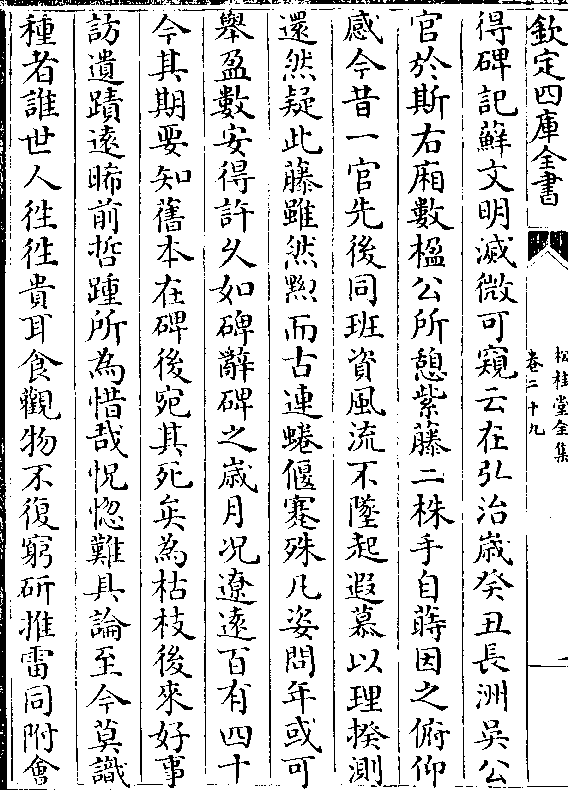 欽定四庫全書
松桂堂全集
卷二十九
得碑記蘚文明滅微可窺云在弘治歳癸丑長洲吳公
官於斯右廂數楹公所憩紫藤二株手自蒔因之俯仰
感今昔一官先後同班資風流不墜起遐慕以理揆測
還然疑此藤雖然㸃而古連蜷偃蹇殊凡姿問年或可
舉盈數安得許乆如碑辭碑之歳月况遼遠百有四十
今其期要知舊本在碑後宛其死矣為枯枝後來好事
訪遺蹟逺晞前哲踵所為惜哉怳惚難具論至今莫識
種者誰世人徃徃貴耳食觀物不復窮斫推雷同附㑹